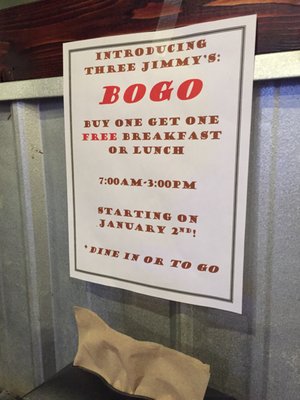 INTRODUCING
THREE JIMMY'S:
BOGO
BUY ONE GET ONE
FREE BREAKFAST
OR LUNCH
7:00AM-3:00PM
STARTING ON
JANUARY 2ND!
*DINE IN OR TO GO